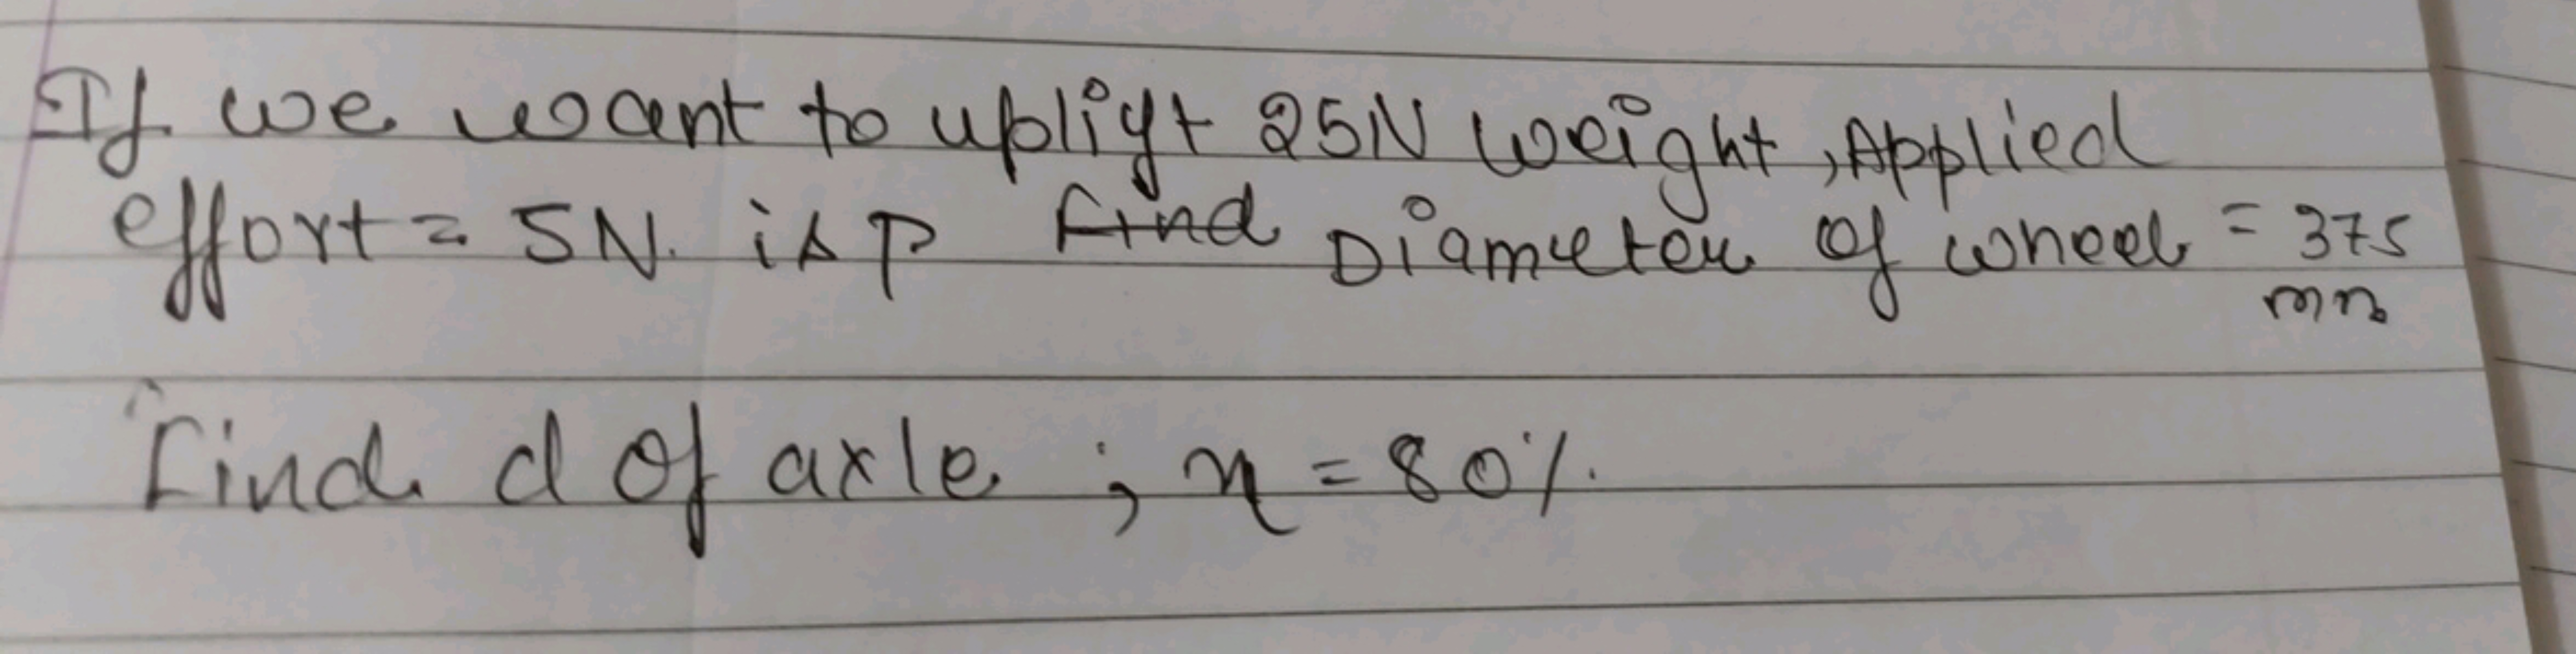 If we want to uplift 25N weight, Applied
effort = 5N. is P find Diameter of wheel = 375
mm
Find d of axle ; η = 80%.